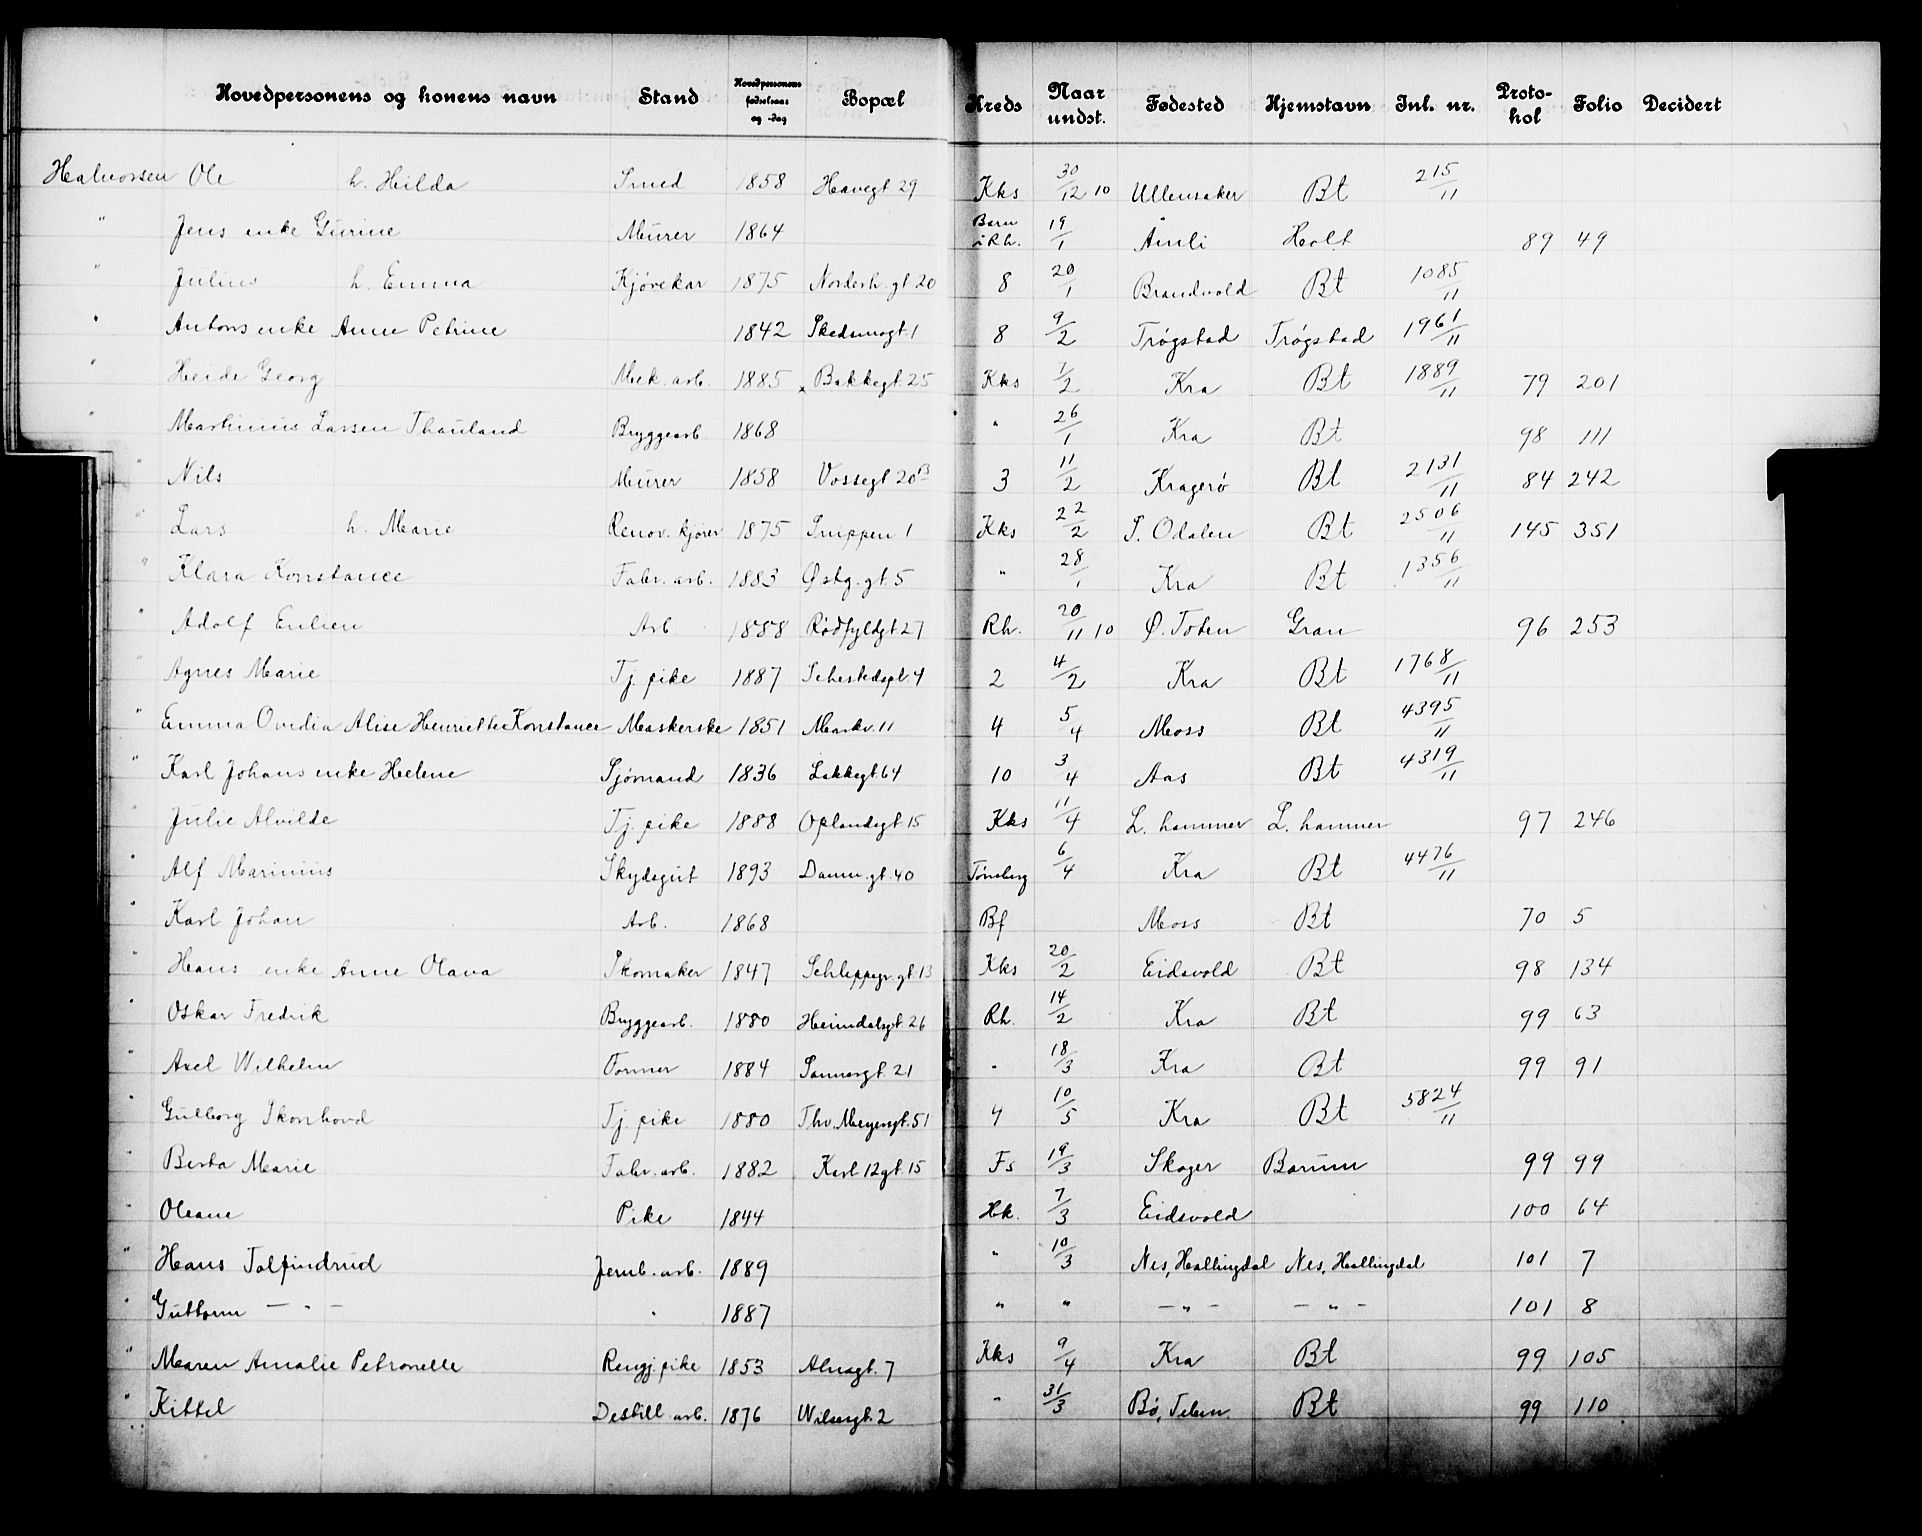 Hovedpersonens og konens navn Stand Hovedpersonens fødselsaar og -dag Bopæl Kreds Naar undst. Fødested Hjemstavn Inl. nr. Protokol Folio Decidert
Halvorsen Ole h. Hilda Smed 1858 Havegt 29 Kks 30/12 10 Ullensaker Bt 215/11
" Jens enke Gurine Murer 1864 Barn i Rh. 19/1 Åmli Holt 89 49
" Julius h. Emma Kjørekar 1875 Norderh. gt 20 8 20/1 Brandvold Bt 1085/11
" Antons enke Anne Petrine 1842 Skedsmogt. 1 8 9/2 Trøgstad Trøgstad 1961/11
" Heide Georg Mek. arb. 1885 Bakkegt. 25 Kks 7/2 Kra Bt 1889/11 79 201
" Martinius Larsen Thauland Bryggearb. 1868 " 26/1 Kra Bt 98 111
" Nils Murer 1858 Vossegt 20 B 3 11/2 Kragerø Bt 2131/11 84 242
" Lars h. Marie Renov. kjører 1875 Snippen 1 Kks 22/2 S. Odalen Bt 2506/11 145 351
" Klara Konstance Fabr. arb. 1883 Østg. gt. 5 " 28/1 Kra Bt 1356/11
" Adolf Emlien Arb 1858 Rødfyldgt 27 Rh. 20/11 10 Ø. Toten Gran 96 253
" Agnes Marie Tj. pike 1887 Sehestedspl. 4 2 4/2 Kra Bt 1768/11
" Emma Ovidia Alise Henriette Konstance Maskerske 1851 Markv. 11 4 5/4 Moss Bt 4395/11
" Karl Johans enke Helene Sjømand 1836 Lakkegt. 64 10 3/4 Aas Bt 4319/11
" Julie Alvilde Tj. pike 1888 Oplandsgt 15 Kks 11/4 L. hammer L. hammer 97 246
" Alf Marinius Skydsgut 1893 Danm. gt. 40 Tønsberg 6/4 Kra Bt 4476/11
" Karl Johan Arb. 1868 Bf Moss Bt 70 5
" Hans enke Anne Olava Skomaker 1847 Schleppegr. gt. 13 Kks 20/2 Eidsvold Bt 98 134
" Oskar Fredrik Bryggearb. 1880 Heimdalsgt. 26 Rh. 14/2 Kra Bt 99 63
" Axel Wilhelm Former 1884 Sannergt. 21 " 18/3 Kra Bt 99 91
" Gulborg Skorhovd Tj. pike 1880 Thv. Meyersgt. 51 4 10/5 Kra Bt 5824/11
" Berta Marie Fabr. arb. 1882 Karl 12 gt. 15 Fs 19/3 Skoger Bærum 99 99
" Oleane Pike 1844 Hk. 7/3 Eidsvold 100 64
" Hans Tolfindrud Jernb. arb. 1889 " 10/3 Nes, Hallingdal Nes, Hallingdal 101 7
" Guttorm — " — " 1887 " " — " — — " — 101 8
" Maren Amalie Petronelle Rengj. pike 1853 Alnagt. 7 Kks 9/4 Kra Bt 99 105
" Kittel Destill. arb. 1876 Wilsesgt. 2 " 31/3 Bø, Telem. Bt 99 110